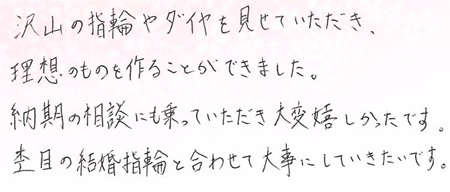 沢山の指輪やダイヤを見せていただき、
理想のものを作ることができました。
納期の相談にも乗っていただき大変嬉しかったです。
杢目の結婚指輪と合わせて大事にしていきたいです。